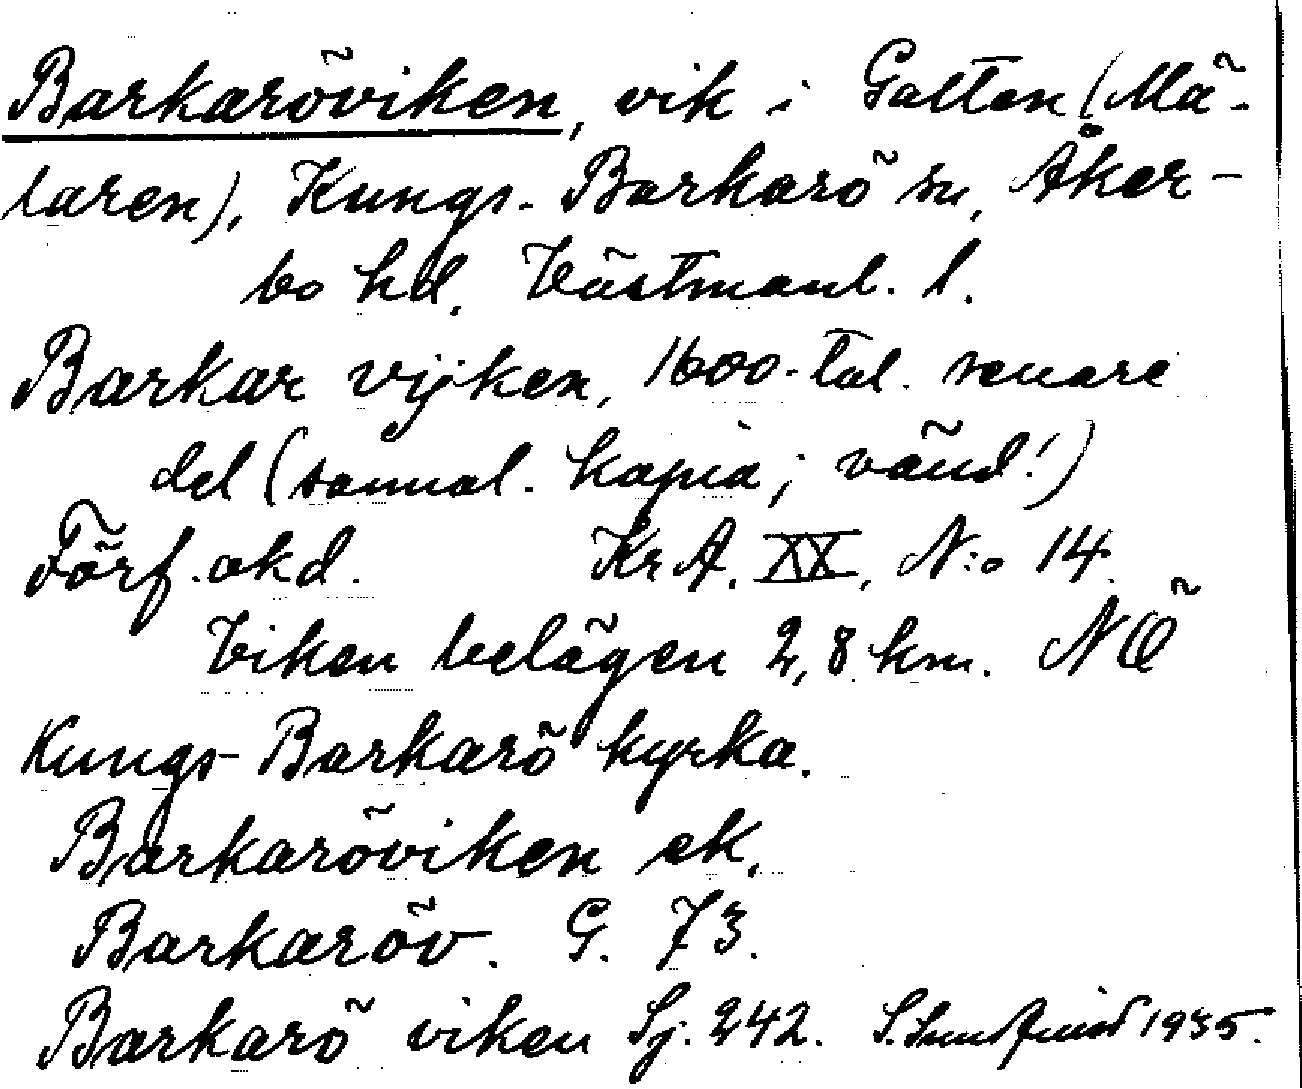 Barkaröviken, vik i Galten (Mä-
laren), Kungs-Barkarö sn, Åker-
bo hd, Västmanl. l.
Barkar vijken, 1600-tal. senare
del (samal. kopia; vänd!)
Förf. okd. KrA. XX, N:o 14.
Viken belägen 2,8 km. NÖ
Kungs-Barkarö kyrka.
Barkaröviken ek.
Barkaröv. G. 73.
Barkarö viken Sj. 242. 1935.